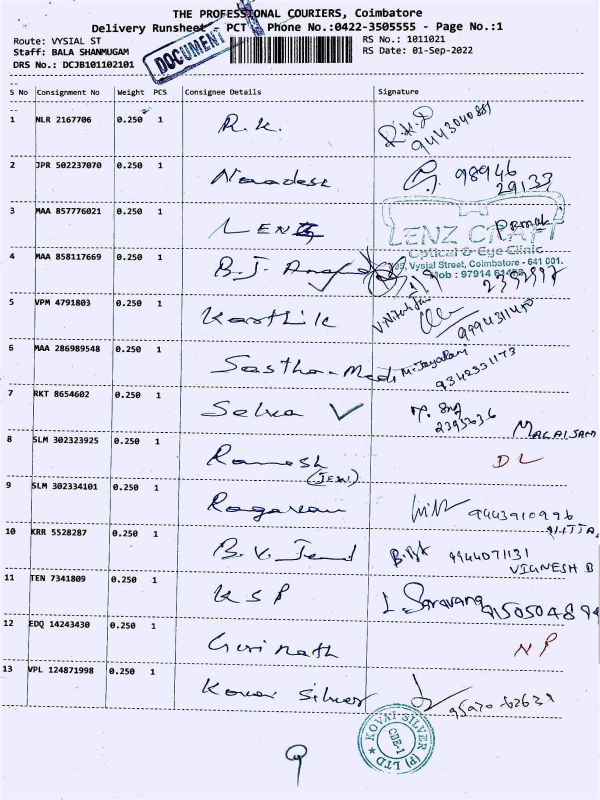 THE PROFESSIONAL COURIERS, Coimbatore
Delivery Runsheet - PCT Phone No.:0422-3505555 - Page No.:1
Route: VYSIAL ST
RS No.: 1011021
Staff: BALA SHANMUGAM
RS Date: 01-Sep-2022
DRS No.: DCJB101102101
DOCUMENT
S No Consignment No Weight PCS Consignee Details Signature
1 NLR 2167706 0.250 1 R.K.
9443040881
2 JPR 502237070 0.250 1
98946
29133
3 MAA 857776021 0.250 1 LENZ
LENZ CRAFT
Optical & Eye Clinic
Vysial Street, Coimbatore - 641 001.
4 MAA 858117669 0.250 1 B.J. Anand
5 VPM 4791803 0.250 1 Karthik
6 MAA 286989548 0.250 1 Sastha - Medi
9342331173
7 RKT 8654602 0.250 1 Selva
8 SLM 302323925 0.250 1 Ramesh
(JEW.)
DL
9 SLM 302334101 0.250 1 Ragavan
9443910996
10 KRR 5528287 0.250 1 B.V.
9944071131
VIGNESH B
11 TEN 7341809 0.250 1 KSP
12 EDQ 14243430 0.250 1 Guri nath
NP
13 VPL 124871998 0.250 1 Kovai Silver
KOVAI SILVER
(P) LTD
CBE-1